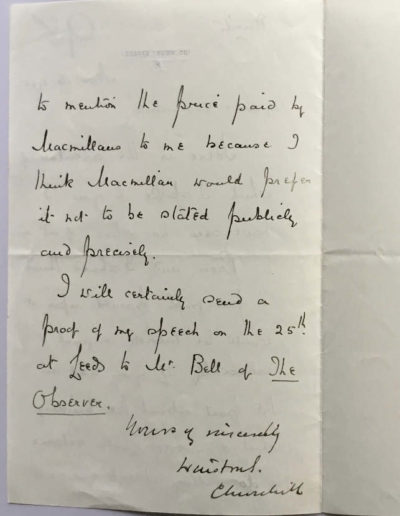 to mention the price paid by
Macmillans to me because I
think Macmillan would prefer
it not to be stated publicly
and precisely.
I will certainly send a
proof of my speech on the 25th.
at Leeds to Mr. Bell of The
Observer.
Yours sincerely
Winston S.
Churchill